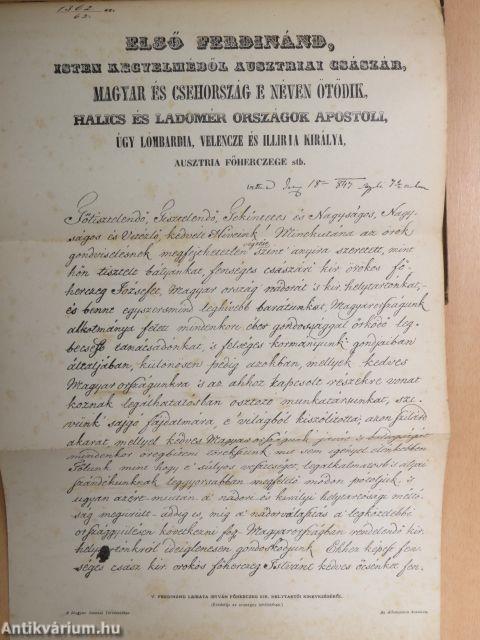 1862
62.
ELSŐ FERDINÁND,
ISTEN KEGYELMÉBŐL AUSZTRIAI CSÁSZÁR,
MAGYAR ÉS CSEHORSZÁG E NÉVEN ÖTÖDIK,
HALICS ÉS LADOMÉR ORSZÁGOK APOSTOLI,
ÚGY LOMBARDIA, VELENCZE ÉS ILLIRIA KIRÁLYA,
AUSZTRIA FŐHERCZEGE stb.
18 847
Főtisztelendő, Tisztelendő, Tekintetes és Nagyságos, Nagy-
ságos és Vitézlő, kedvelt Híveink! Minekutána az örök
gondviselésnek megfejthetetlen végzése annyira szeretett, mint
hőn tisztelt bátyánkat, fenséges császári kir. örökös fő-
herczeg Józsefet, Magyar ország nádorát 's kir. helytartónkat,
és benne egyszersmind leghívebb barátunkat, Magyarországunk
alkotmánya felett mindenkor éber gondossággal őrködő leg-
becsesb tanácsadónkat, 's felséges kormányunk gondjaiban
általjában, különösen pedig azokban, mellyek kedves
Magyarországunkra 's az ahhoz kapcsolt részekre vonat-
koznak legálhatatosban osztozó munkatársunkat, szí-
vünk sajgó fájdalmára, e' világból kiszólította; azon szilárd
akarat, mellyel kedves Magyarországunk javát 's boldogságát
mindenkor öregbíteni törekszünk mit sem igényel elenkebben
Tőlünk mint hogy e' súlyos veszteséget, legalkalmatosb 's atyai
szándékunknak leggyorsabban megfelelő módon pótoljuk 's
ugyan azért miután a' nádori és királyi helytartósági méltó-
ság megürült, addig is, míg a' nádorválasztás a' legközelebbi
országgyülésen következni fog, Magyarországban rendelendő kir.
helytartónkról ideiglenesen gondoskodjunk. Ehhez képest fen-
séges császr. kir. örökös főherczeg Istvánt kedves öcsénket
V. FERDINÁND LEIRATA ISTVÁN FŐHERCZEG KIR. HELYTARTÓI KINEVEZÉSÉRŐL.
(Eredetije az országos levéltárban.)
A Magyar Nemzet Történetéhez.
Az Athenaeum kiadása.
Antikvárium.hu